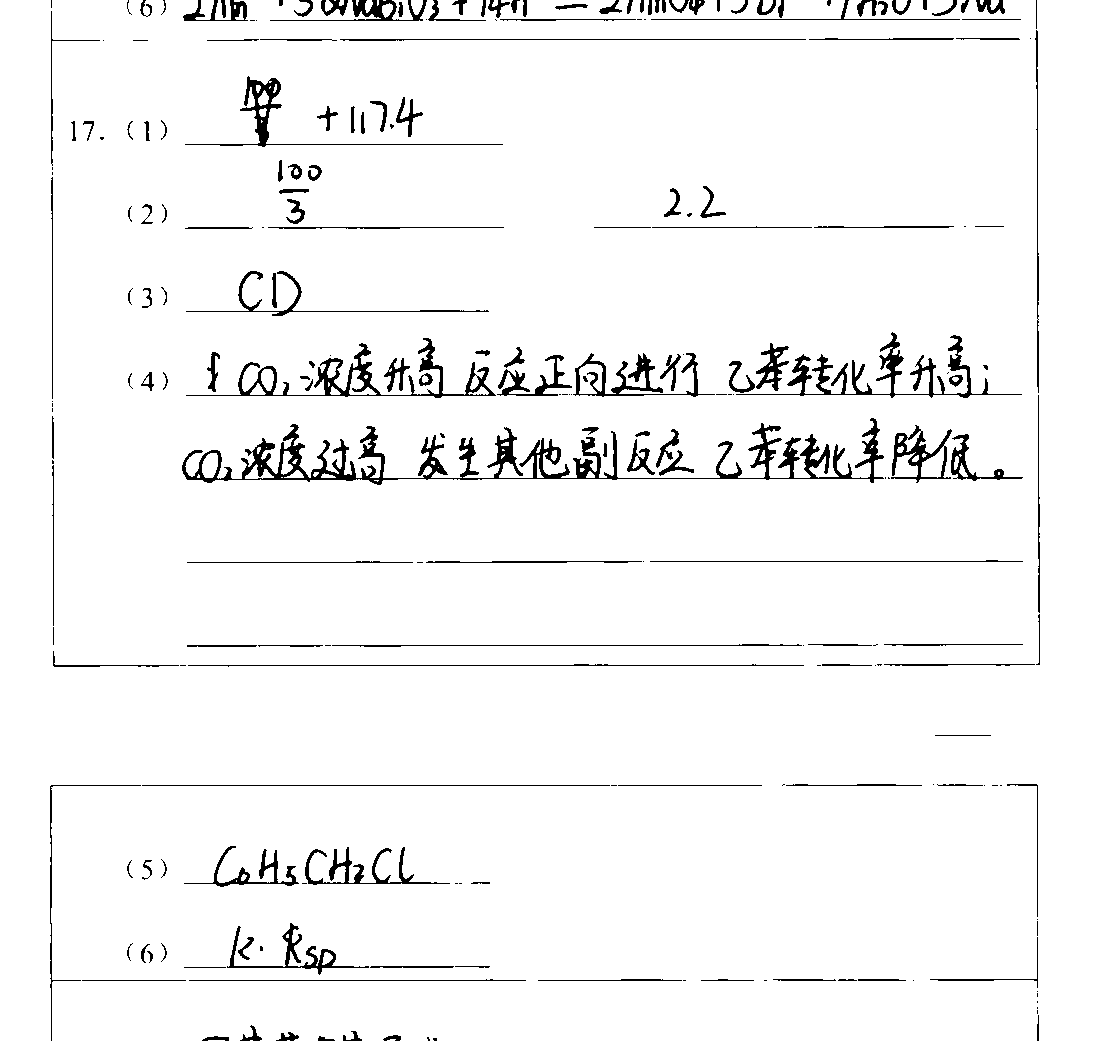 (6)
17. (1) +117.4
(2) 100/3 2.2
(3) CD
(4) CO₂浓度升高 反应正向进行 乙苯转化率升高;
CO₂浓度过高 发生其他副反应 乙苯转化率降低。
(5) C₆H₅CH₂Cl
(6) K·Ksp